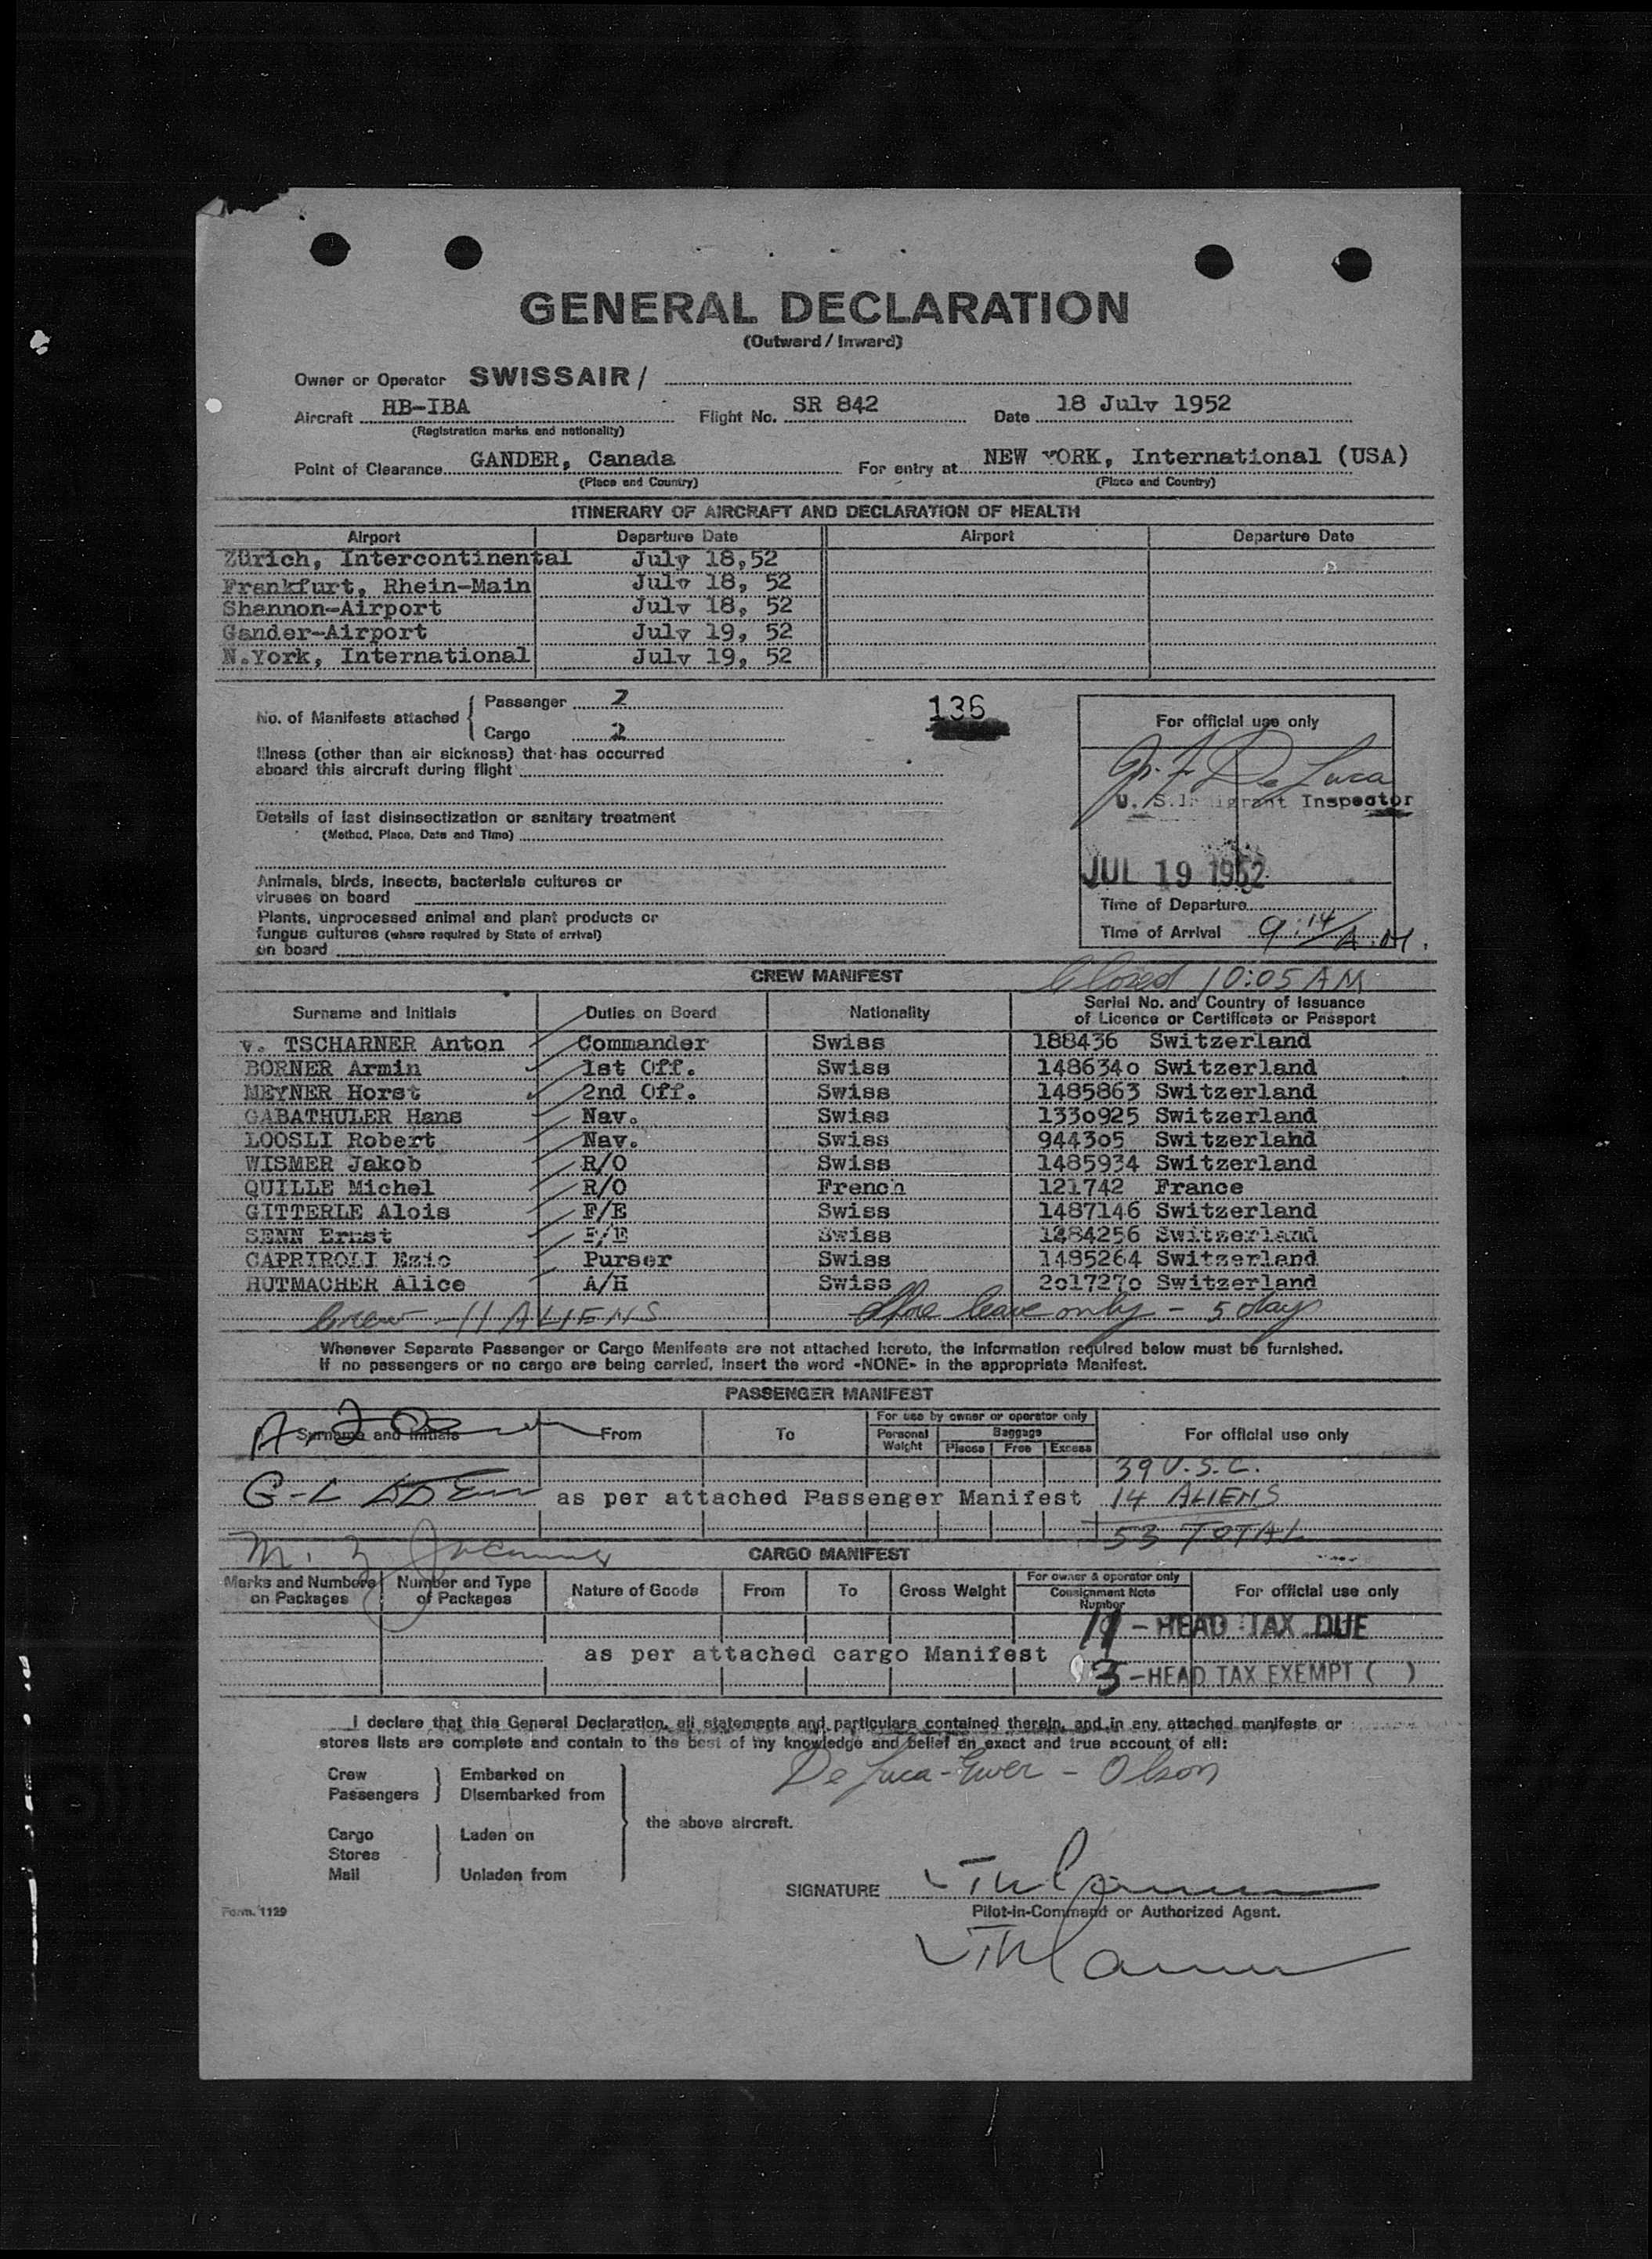 GENERAL DECLARATION
(Outward / Inward)
Owner or Operator SWISSAIR /
Aircraft HB-IBA Flight No. SR 842 Date 18 July 1952
(Registration marks and nationality)
Point of Clearance GANDER, Canada For entry at NEW YORK, International (USA)
(Place and Country) (Place and Country)
ITINERARY OF AIRCRAFT AND DECLARATION OF HEALTH
Airport Departure Date Airport Departure Date
Zürich, Intercontinental July 18,52
Frankfurt, Rhein-Main July 18, 52
Shannon-Airport July 18, 52
Gander-Airport July 19, 52
N.York, International July 19, 52
No. of Manifests attached
Passenger 2
Cargo 2
136
For official use only
Illness (other than air sickness) that has occurred
aboard this aircraft during flight
De Luca
U. S. Immigrant Inspector
Details of last disinsectization or sanitary treatment
(Method, Place, Date and Time)
JUL 19 1952
Animals, birds, insects, bacteriale cultures or
viruses on board
Time of Departure
Plants, unprocessed animal and plant products or
fungus cultures (where required by State of arrival)
on board
Time of Arrival 9:14 A.M.
CREW MANIFEST
Closed 10:05 AM
Surname and Initials Duties on Board Nationality Serial No. and Country of Issuance
of Licence or Certificate or Passport
v. TSCHARNER Anton Commander Swiss 188436 Switzerland
BORNER Armin 1st Off. Swiss 148634o Switzerland
MEYNER Horst 2nd Off. Swiss 1485863 Switzerland
GABATHULER Hans Nav. Swiss 133o925 Switzerland
LOOSLI Robert Nav. Swiss 9443o5 Switzerland
WISMER Jakob R/O Swiss 1485934 Switzerland
QUILLE Michel R/O French 121742 France
GITTERLE Alois F/E Swiss 1487146 Switzerland
SENN Ernst F/E Swiss 1284256 Switzerland
CAPRIROLI Ezio Purser Swiss 1485264 Switzerland
HUTMACHER Alice A/H Swiss 2o1727o Switzerland
Crew - 11 ALIENS Shore leave only - 5 days
Whenever Separate Passenger or Cargo Manifests are not attached hereto, the information required below must be furnished.
If no passengers or no cargo are being carried, insert the word «NONE» in the appropriate Manifest.
PASSENGER MANIFEST
Surname and Initials From To For use by owner or operator only For official use only
Personal Weight Baggage
Pieces Free Excess
39 U.S.C.
as per attached Passenger Manifest 14 ALIENS
53 TOTAL
CARGO MANIFEST
Marks and Numbers on Packages Number and Type of Packages Nature of Goods From To Gross Weight For owner & operator only Consignment Note Number For official use only
11 - HEAD TAX DUE
as per attached cargo Manifest
3 - HEAD TAX EXEMPT ( )
I declare that this General Declaration, all statements and particulars contained therein, and in any attached manifests or
stores lists are complete and contain to the best of my knowledge and belief an exact and true account of all:
De Luca - Ewer - Olson
Crew
Passengers
Embarked on
Disembarked from
the above aircraft.
Cargo
Stores
Mail
Laden on
Unladen from
SIGNATURE
Pilot-in-Command or Authorized Agent.
Form. 1129